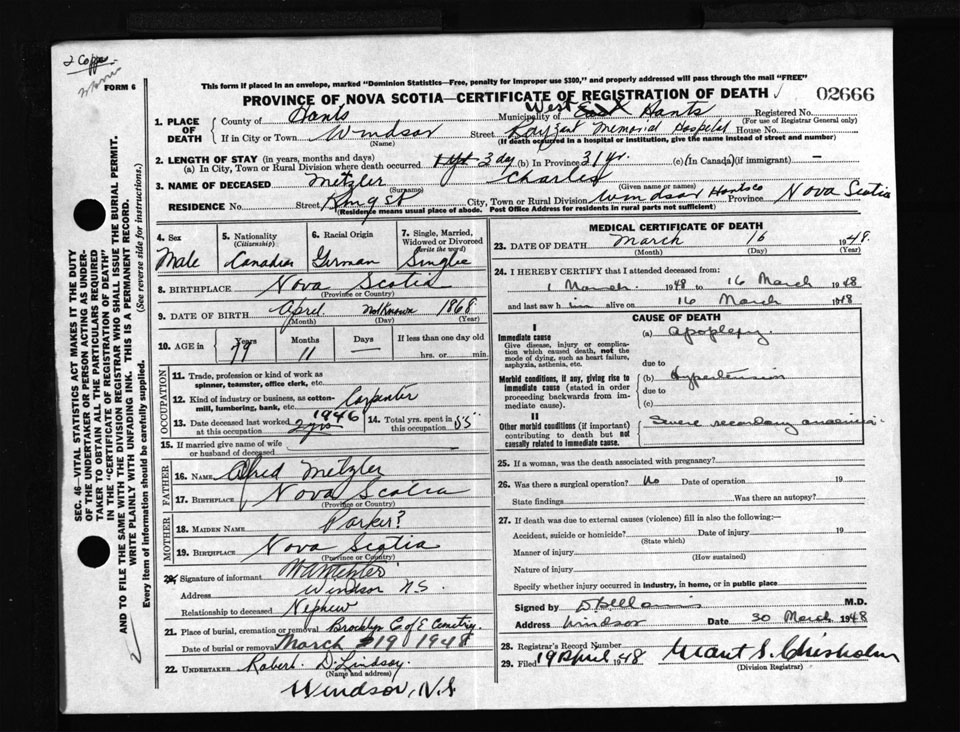 2 Copys
FORM 6
This form if placed in an envelope, marked "Dominion Statistics—Free, penalty for improper use $300," and properly addressed will pass through the mail "FREE"
PROVINCE OF NOVA SCOTIA—CERTIFICATE OF REGISTRATION OF DEATH
02666
1. PLACE OF DEATH
County of Hants Municipality of West East Hants Registered No.
(For use of Registrar General only)
If in City or Town Windsor Street Payzant Memorial Hospital House No.
(Name) (If death occurred in a hospital or institution, give the name instead of street and number)
2. LENGTH OF STAY (in years, months and days)
(a) In City, Town or Rural Division where death occurred 3 day (b) In Province 31 yr. (c) (In Canada) (if immigrant) —
3. NAME OF DECEASED Metzler Charles
(Surname) (Given name or names)
RESIDENCE No. Street King St City, Town or Rural Division Windsor Hants Co Province Nova Scotia
(Residence means usual place of abode. Post Office Address for residents in rural parts not sufficient)
4. Sex Male
5. Nationality (Citizenship) Canadian
6. Racial Origin German
7. Single, Married, Widowed or Divorced (Write the word) Single
8. BIRTHPLACE Nova Scotia
(Province or Country)
9. DATE OF BIRTH April Not Known 1868
(Month) (Day) (Year)
10. AGE in Years Months Days If less than one day old
79 11 — hrs. or min.
OCCUPATION
11. Trade, profession or kind of work as spinner, teamster, office clerk, etc.
12. Kind of industry or business, as cotton-mill, lumbering, bank, etc. Carpenter
13. Date deceased last worked at this occupation 1946 2 yrs
14. Total yrs. spent in this occupation 55
15. If married give name of wife or husband of deceased
FATHER
16. NAME Alfred Metzler
17. BIRTHPLACE Nova Scotia
(Province or Country)
MOTHER
18. MAIDEN NAME Parker?
19. BIRTHPLACE Nova Scotia
(Province or Country)
20. Signature of informant
Address Windsor N.S.
Relationship to deceased Nephew
21. Place of burial, cremation or removal Brooklyn C. of E. Cemetry.
Date of burial or removal March 19 1948
22. UNDERTAKER Robert D. Lindsay
(Name and address)
Windsor, N.S
MEDICAL CERTIFICATE OF DEATH
23. DATE OF DEATH March 16 1948.
(Month) (Day) (Year)
24. I HEREBY CERTIFY that I attended deceased from:
1 March 1948 to 16 March 1948
and last saw h im alive on 16 March 1948
CAUSE OF DEATH
I
Immediate cause
Give disease, injury or complication which caused death, not the mode of dying, such as heart failure, asphyxia, asthenia, etc.
(a) apoplexy.
due to
Morbid conditions, if any, giving rise to immediate cause (stated in order proceeding backwards from immediate cause).
(b) Hypertension
due to
(c)
II
Other morbid conditions (if important) contributing to death but not causally related to immediate cause.
Severe secondary anaemia.
25. If a woman, was the death associated with pregnancy?
26. Was there a surgical operation? No Date of operation 19
State findings Was there an autopsy?
27. If death was due to external causes (violence) fill in also the following:—
Accident, suicide or homicide? Date of injury 19
(State which)
Manner of injury
(How sustained)
Nature of injury
Specify whether injury occurred in industry, in home, or in public place
Signed by M.D.
Address Windsor Date 30 March 1948
28. Registrar's Record Number
29. Filed 19 April 48 Grant S. Chisholm
(Division Registrar)
SEC. 46—VITAL STATISTICS ACT MAKES IT THE DUTY
OF THE UNDERTAKER OR PERSON ACTING AS UNDER-
TAKER TO OBTAIN ALL THE PARTICULARS REQUIRED
IN THE "CERTIFICATE OF REGISTRATION OF DEATH"
AND TO FILE THE SAME WITH THE DIVISION REGISTRAR WHO SHALL ISSUE THE BURIAL PERMIT.
WRITE PLAINLY WITH UNFADING INK. THIS IS A PERMANENT RECORD.
Every item of information should be carefully supplied. (See reverse side for instructions.)